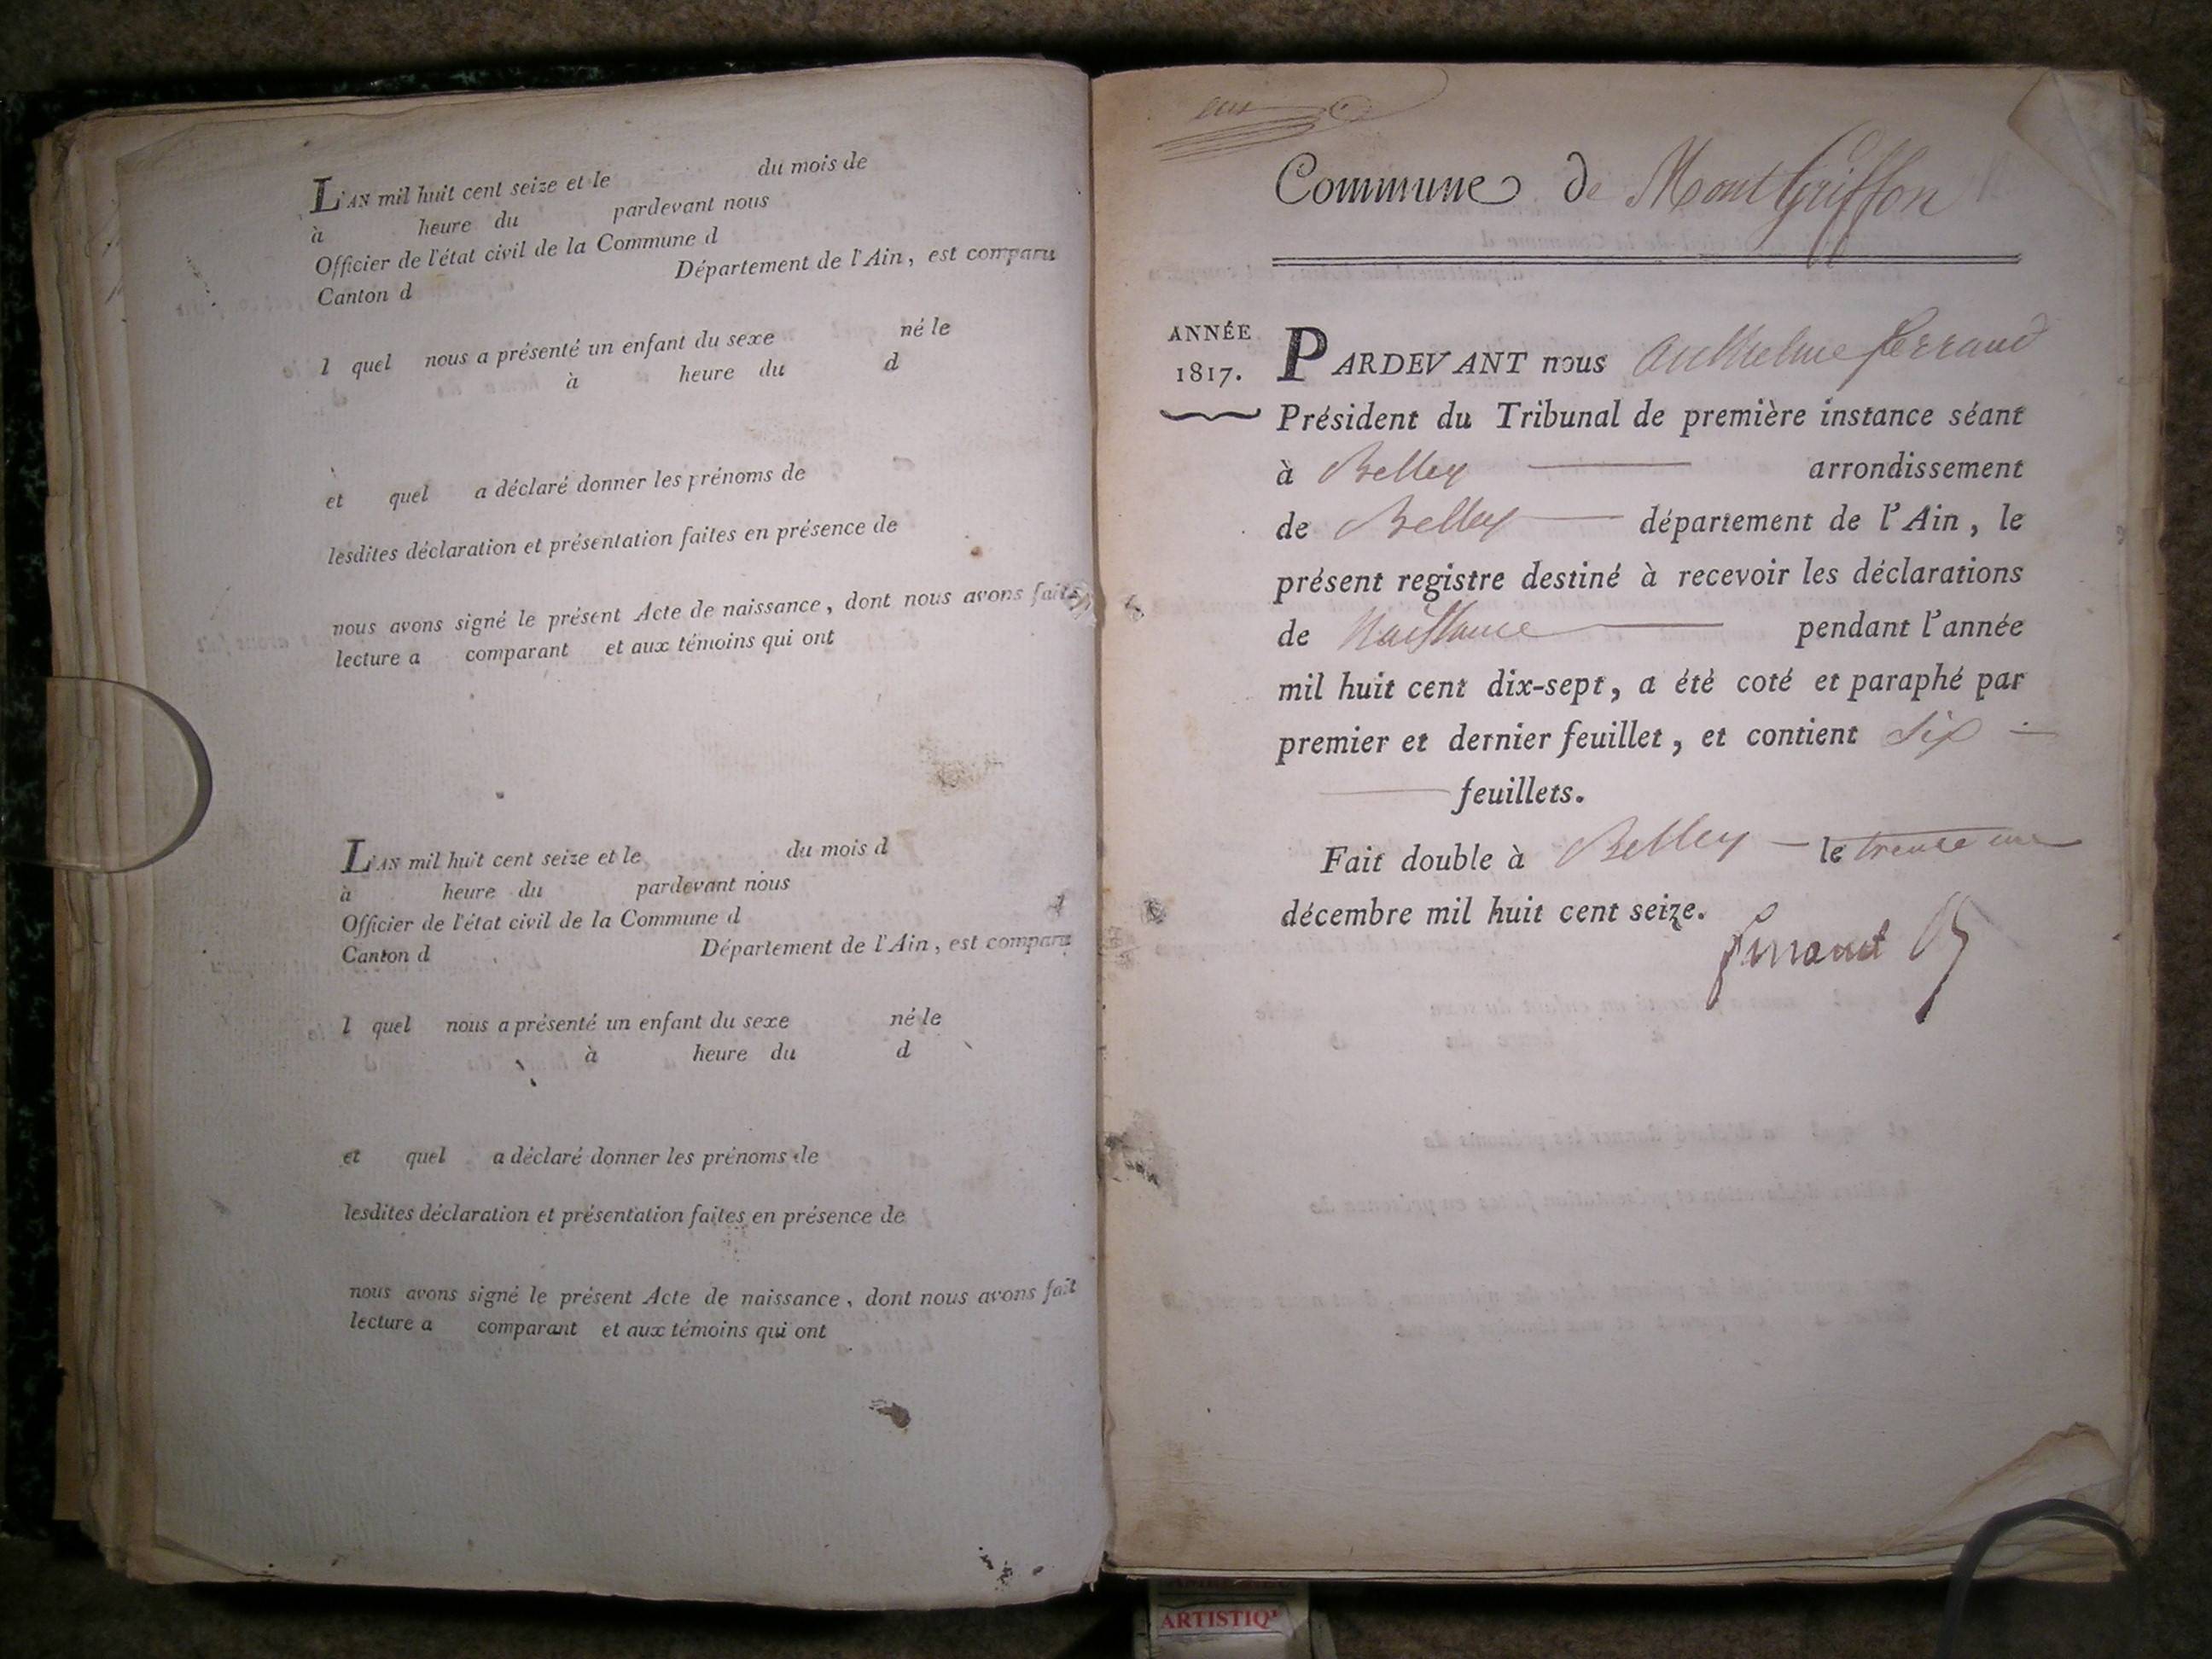 L'AN mil huit cent seize et le du mois de
à heure du pardevant nous
Officier de l'état civil de la Commune d
Canton d Département de l'Ain, est comparu
l quel nous a présenté un enfant du sexe né le
à heure du d
et quel a déclaré donner les prénoms de
lesdites déclaration et présentation faites en présence de
nous avons signé le présent Acte de naissance, dont nous avons fait
lecture a comparant et aux témoins qui ont
L'AN mil huit cent seize et le du mois d
à heure du pardevant nous
Officier de l'état civil de la Commune d
Canton d Département de l'Ain, est comparu
l quel nous a présenté un enfant du sexe né le
à heure du d
et quel a déclaré donner les prénoms de
lesdites déclaration et présentation faites en présence de
nous avons signé le présent Acte de naissance, dont nous avons fait
lecture a comparant et aux témoins qui ont
Commune de MontGriffon
ANNÉE
1817.
PARDEVANT nous Anthelme ferrand
Président du Tribunal de première instance séant
à Belley arrondissement
de Belley département de l'Ain, le
présent registre destiné à recevoir les déclarations
de Naissance pendant l'année
mil huit cent dix-sept, a été coté et paraphé par
premier et dernier feuillet, et contient Six
feuillets.
Fait double à Belley le trente un
décembre mil huit cent seize.
ferrand
ARTISTIQ